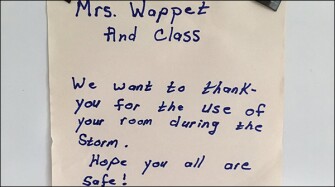 Mrs. Wappet
And Class
We want to thank-
you for the use of
your room during the
Storm.
Hope you all are
Safe!